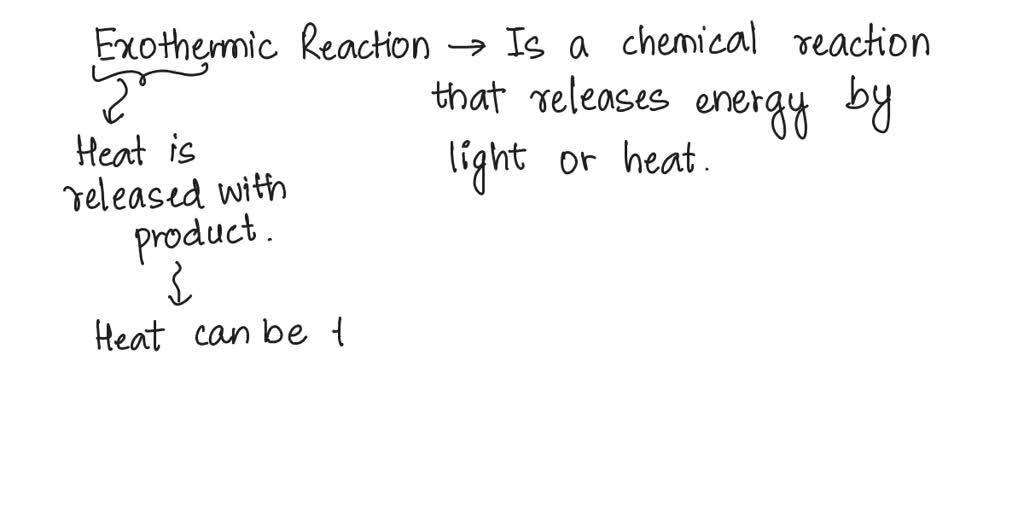 Exothermic Reaction → Is a chemical reaction
that releases energy by
light or heat.
Heat is
released with
product.
Heat can be t